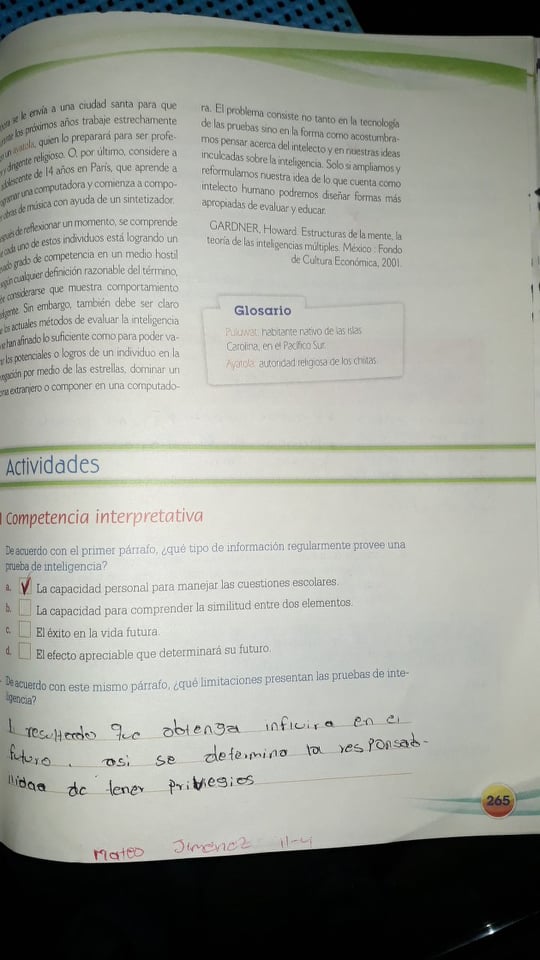 se le envía a una ciudad santa para que
los próximos años trabaje estrechamente
un ayatola, quien lo preparará para ser profe-
y dirigente religioso. O, por último, considere a
adolescente de 14 años en París, que aprende a
una computadora y comienza a compo-
obras de música con ayuda de un sintetizador.
de reflexionar un momento, se comprende
cada uno de estos individuos está logrando un
grado de competencia en un medio hostil
según cualquier definición razonable del término,
considerarse que muestra comportamiento
Sin embargo, también debe ser claro
los actuales métodos de evaluar la inteligencia
se han afinado lo suficiente como para poder va-
los potenciales o logros de un individuo en la
por medio de las estrellas, dominar un
extranjero o componer en una computado-
ra. El problema consiste no tanto en la tecnología
de las pruebas sino en la forma como acostumbra-
mos pensar acerca del intelecto y en nuestras ideas
inculcadas sobre la inteligencia. Solo si ampliamos y
reformulamos nuestra idea de lo que cuenta como
intelecto humano podremos diseñar formas más
apropiadas de evaluar y educar.
GARDNER, Howard. Estructuras de la mente, la
teoría de las inteligencias múltiples. México : Fondo
de Cultura Económica, 2001.
Glosario
Puluwat: habitante nativo de las islas
Carolina, en el Pacífico Sur.
Ayatola: autoridad religiosa de los chiitas.
Actividades
Competencia interpretativa
De acuerdo con el primer párrafo, ¿qué tipo de información regularmente provee una
prueba de inteligencia?
a. La capacidad personal para manejar las cuestiones escolares.
b. La capacidad para comprender la similitud entre dos elementos.
c. El éxito en la vida futura.
d. El efecto apreciable que determinará su futuro.
De acuerdo con este mismo párrafo, ¿qué limitaciones presentan las pruebas de inte-
ligencia?
resultado que obtenga influira en el
futuro. asi se determina la responsab-
ilidad de tener privilegios
265
Mateo Jiménez 11-4